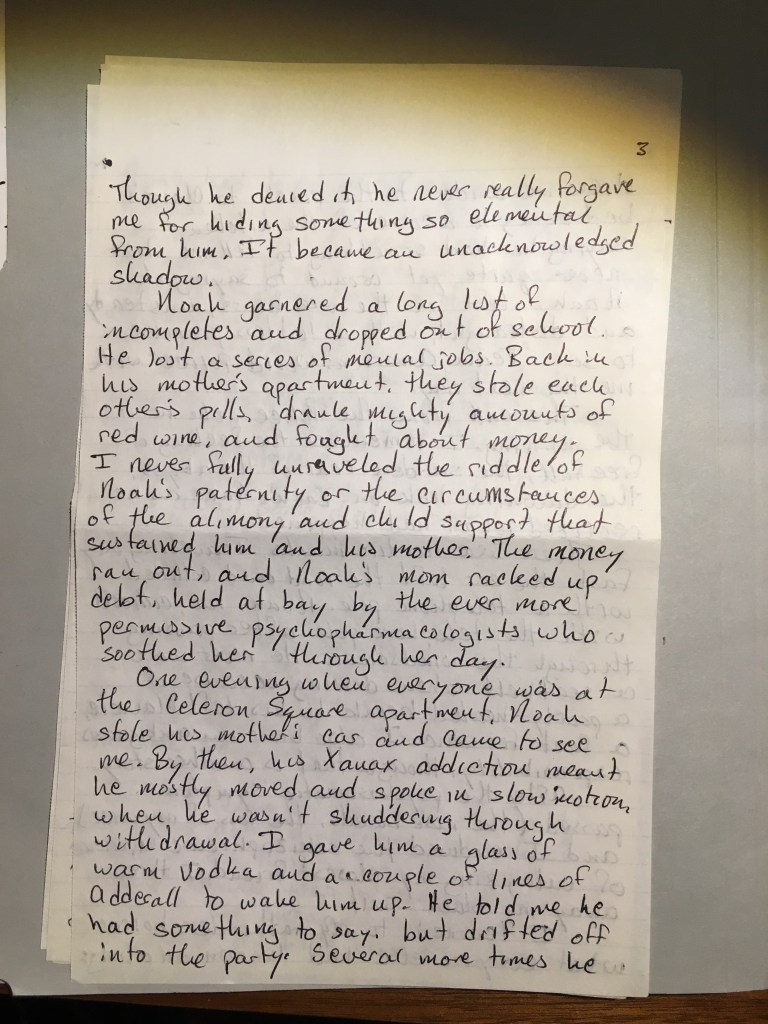 3
Though he denied it, he never really forgave
me for hiding something so elemental
from him. It became an unacknowledged
shadow.
Noah garnered a long list of
incompletes and dropped out of school.
He lost a series of menial jobs. Back in
his mother's apartment, they stole each
other's pills, drank mighty amounts of
red wine, and fought about money.
I never fully unraveled the riddle of
Noah's paternity or the circumstances
of the alimony and child support that
sustained him and his mother. The money
ran out, and Noah's mom racked up
debt, held at bay by the ever more
permissive psychopharmacologists who
soothed her through her day.
One evening when everyone was at
the Celeron Square apartment, Noah
stole his mother's car and came to see
me. By then, his Xanax addiction meant
he mostly moved and spoke in slow motion,
when he wasn't shuddering through
withdrawal. I gave him a glass of
warm vodka and a couple of lines of
Adderall to wake him up. He told me he
had something to say, but drifted off
into the party. Several more times he